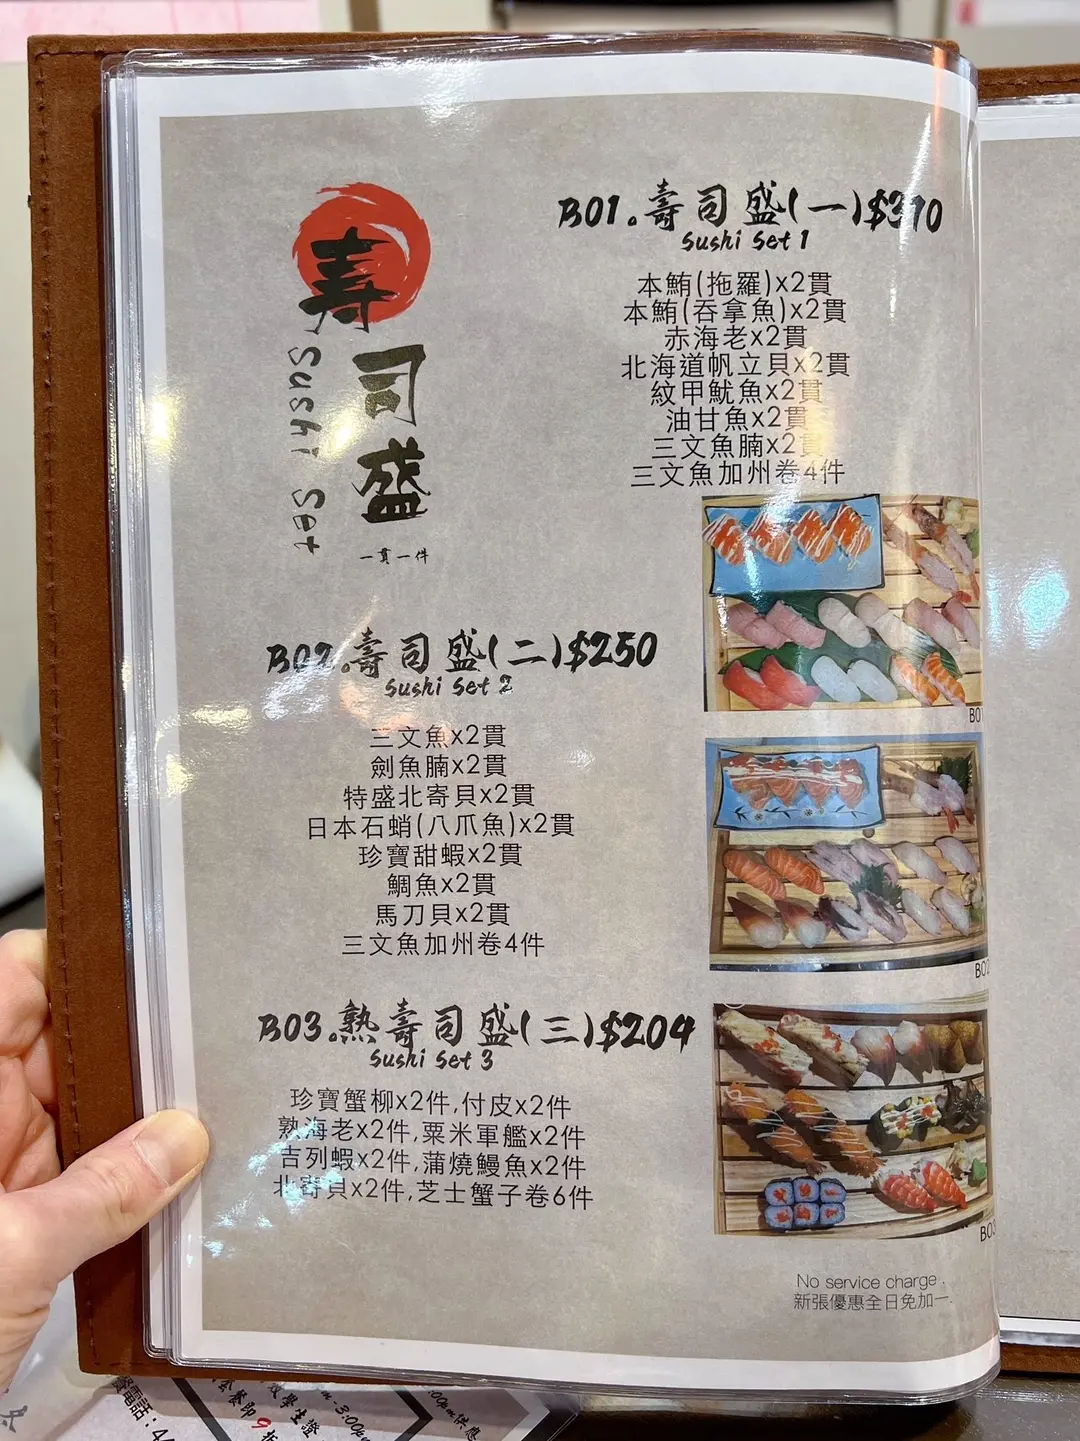 壽司盛
Sushi Set
一貫一件
B01.壽司盛(一)$310
Sushi Set 1
本鮪(拖羅)x2貫
本鮪(吞拿魚)x2貫
赤海老x2貫
北海道帆立貝x2貫
紋甲魷魚x2貫
油甘魚x2貫
三文魚腩x2貫
三文魚加州卷4件
B01
B02.壽司盛(二)$250
Sushi Set 2
三文魚x2貫
劍魚腩x2貫
特盛北寄貝x2貫
日本石蛸(八爪魚)x2貫
珍寶甜蝦x2貫
鯛魚x2貫
馬刀貝x2貫
三文魚加州卷4件
B02
B03.熟壽司盛(三)$204
Sushi Set 3
珍寶蟹柳x2件,付皮x2件
熟海老x2件,粟米軍艦x2件
吉列蝦x2件,蒲燒鰻魚x2件
北寄貝x2件,芝士蟹子卷6件
B03
No service charge.
新張優惠全日免加一